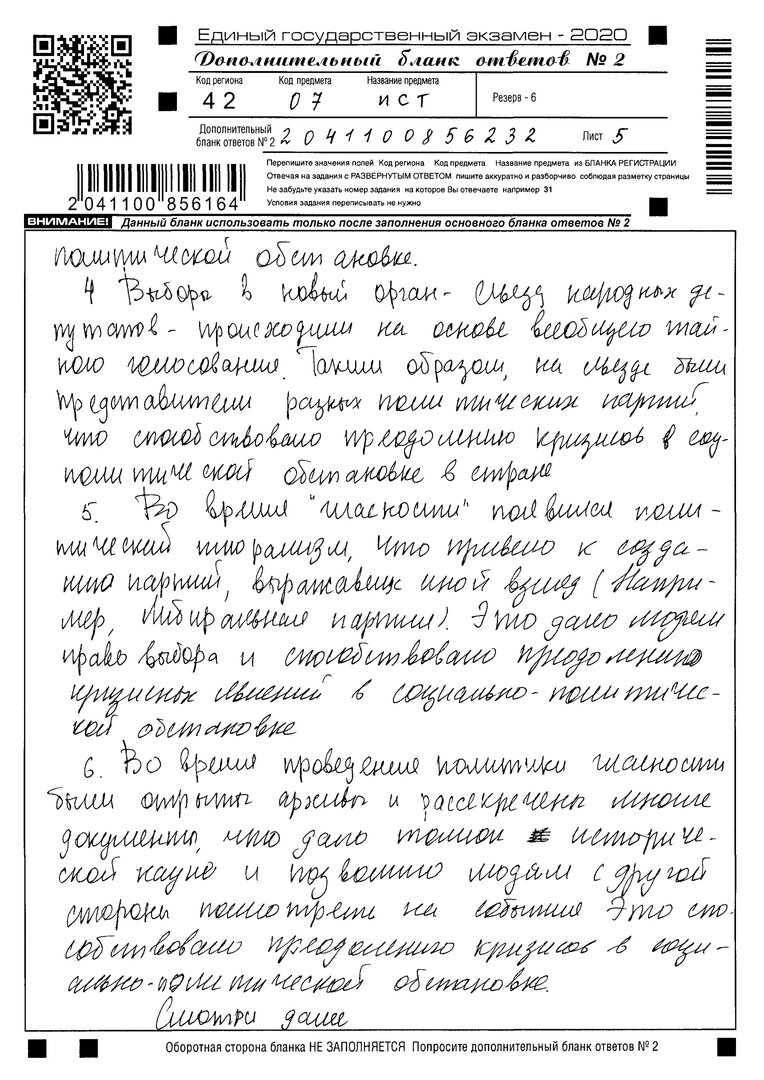 Единый государственный экзамен - 2020
Дополнительный бланк ответов № 2
Код региона Код предмета Название предмета
42 07 ИСТ Резерв - 6
Дополнительный бланк ответов № 2 2041100856232 Лист 5
Перепишите значения полей Код региона Код предмета Название предмета из БЛАНКА РЕГИСТРАЦИИ
Отвечая на задания с РАЗВЕРНУТЫМ ОТВЕТОМ пишите аккуратно и разборчиво соблюдая разметку страницы
Не забудьте указать номер задания на которое Вы отвечаете например 31
Условия задания переписывать не нужно
2 041100 856164
ВНИМАНИЕ! Данный бланк использовать только после заполнения основного бланка ответов № 2
политической обстановке.
4 Выборы в новый орган - Съезд народных де-
путатов - происходили на основе всеобщего тай-
ного голосования. Таким образом, на съезде были
представители разных политических партий,
что способствовало преодолению кризисов в соц-
политической обстановке в стране
5. Во время "гласности" появился поли-
тический плюрализм, что привело к созда-
нию партий, выражавших иной взгляд (Напри-
мер, Либиральные партии). Это дало людям
право выбора и способствовало преодолению
кризисных явлений в социально-политичес-
кой обстановке
6. Во время проведения политики гласности
были открыты архивы и рассекречены многие
документы, что дало толчок историче-
ской науке и позволило людям с другой
стороны посмотреть на события Это спо-
собствовало преодолению кризисов в соци-
ально-политической обстановке.
Смотри далее
Оборотная сторона бланка НЕ ЗАПОЛНЯЕТСЯ Попросите дополнительный бланк ответов № 2